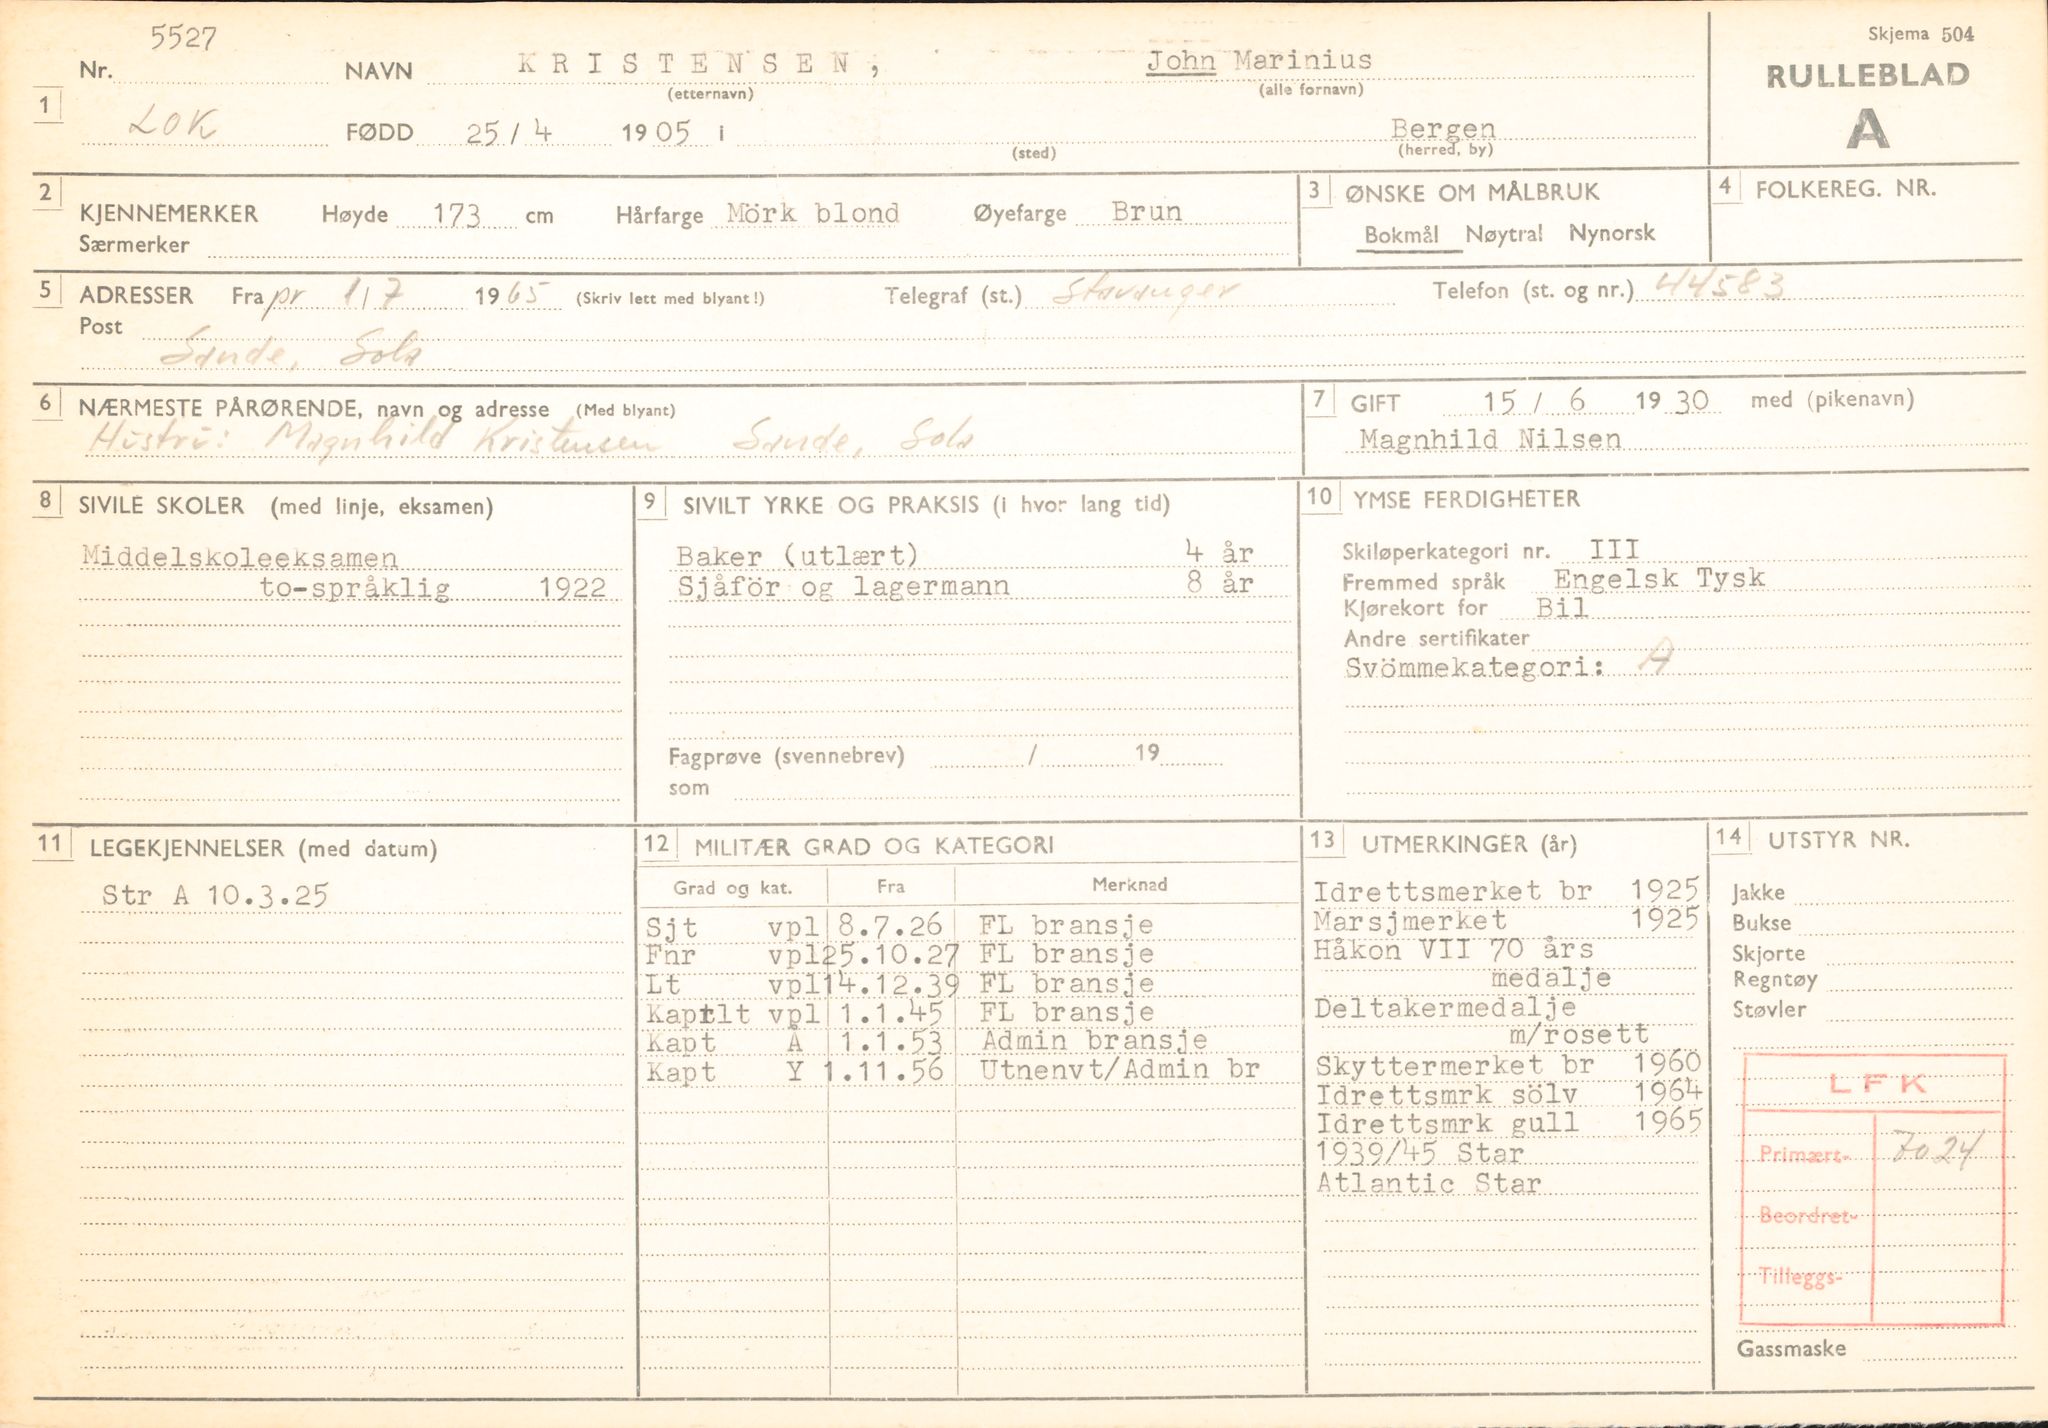 5527
Skjema 504
Nr. NAVN KRISTENSEN, John Marinius
(etternavn) (alle fornavn)
RULLEBLAD
A
1
LOK FØDD 25/4 1905 i Bergen
(sted) (herred, by)
2 KJENNEMERKER Høyde 173 cm Hårfarge Mörk blond Øyefarge Brun
Særmerker
3 ØNSKE OM MÅLBRUK
Bokmål Nøytral Nynorsk
4 FOLKEREG. NR.
5 ADRESSER Fra pr 1/7 1965 (Skriv lett med blyant!) Telegraf (st.) Stavanger Telefon (st. og nr.) 44583
Post
Sande, Sola
6 NÆRMESTE PÅRØRENDE, navn og adresse (Med blyant)
Hustru: Magnhild Kristensen Sande, Sola
7 GIFT 15/6 1930 med (pikenavn)
Magnhild Nilsen
8 SIVILE SKOLER (med linje, eksamen)
Middelskoleeksamen
to-språklig 1922
9 SIVILT YRKE OG PRAKSIS (i hvor lang tid)
Baker (utlært) 4 år
Sjåför og lagermann 8 år
Fagprøve (svennebrev) / 19
som
10 YMSE FERDIGHETER
Skiløperkategori nr. III
Fremmed språk Engelsk Tysk
Kjørekort for Bil
Andre sertifikater
Svömmekategori: A
11 LEGEKJENNELSER (med datum)
Str A 10.3.25
12 MILITÆR GRAD OG KATEGORI
Grad og kat. Fra Merknad
Sjt vpl 8.7.26 FL bransje
Fnr vpl 25.10.27 FL bransje
Lt vpl 14.12.39 FL bransje
Kaptlt vpl 1.1.45 FL bransje
Kapt A 1.1.53 Admin bransje
Kapt Y 1.11.56 Utnenvt/Admin br
13 UTMERKINGER (år)
Idrettsmerket br 1925
Marsjmerket 1925
Håkon VII 70 års
medalje
Deltakermedalje
m/rosett
Skyttermerket br 1960
Idrettsmrk sölv 1964
Idrettsmrk gull 1965
1939/45 Star
Atlantic Star
14 UTSTYR NR.
Jakke
Bukse
Skjorte
Regntøy
Støvler
LFK
Primært- 7024
Beordret-
Tilleggs-
Gassmaske